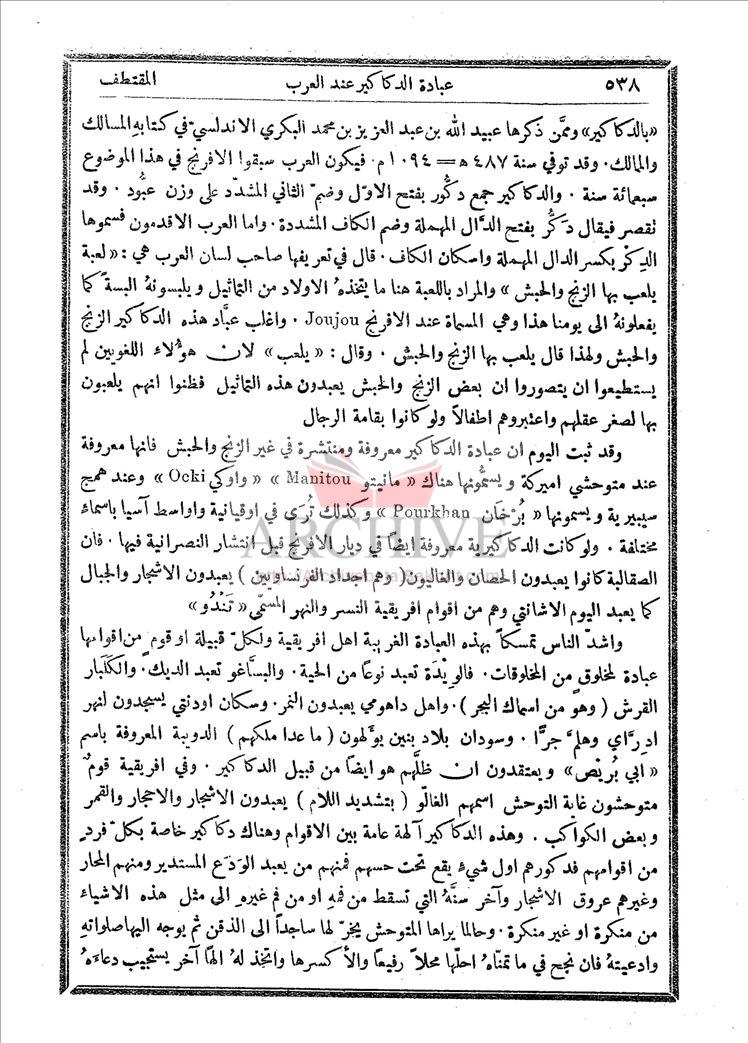 ٥٣٨ عبادة الدكاكير عند العرب المقتطف
«بالدكاكير» وممَّن ذكرها عبيد الله بن عبد العزيز بن محمد البكري الاندلسيّ في كتابهِ المسالك
والمالك. وقد توفي سنة ٤٨٧ ھ = ١٠٩٤ م. فيكون العرب سبقوا الافرنج في هذا الموضوع
سبعمائة سنة. والدكاكير جمع دكُّور بفتح الاوّل وضمّ الثاني المشدّد على وزن عبُّود. وقد
تقصر فيقال دَكُّر بفتح الدَّال المهملة وضم الكاف المشددة. واما العرب الاقدمون فسموها
الدِكْر بكسر الدال المهملة واسكان الكاف. قال في تعريفها صاحب لسان العرب هي: «لعبة
يلعب بها الزنج والحبش» والمراد باللعبة هنا ما يتخذهُ الاولاد من التماثيل ويلبسونهُ البسةً كما
يفعلونهُ الى يومنا هذا وهي المسماة عند الافرنج Joujou. واغلب عبَّاد هذه الدكاكير الزنج
والحبش ولهذا قال يلعب بها الزنج والحبش. وقال: «يلعب» لان هؤلاء اللغويين لم
يستطيعوا ان يتصوروا ان بعض الزنج والحبش يعبدون هذه التماثيل فظنوا انهم يلعبون
بها لصغر عقلهم واعتبروهم اطفالاً ولو كانوا بقامة الرجال
وقد ثبت اليوم ان عبادة الدكاكير معروفة ومنتشرة في غير الزنج والحبش فانها معروفة
عند متوحشي اميركة ويسمُّونها هناك «مانيتو Manitou» «واوكي Ocki» وعند همج
سيبيرية ويسمونها «بُرْخَان Pourkhan» وكذلك تُرَى في اوقيانية واواسط آسيا باسماء
مختلفة. ولو كانت الدكاكيرية معروفة ايضاً في ديار الافرنج قبل انتشار النصرانية فيها. فان
الصقالبة كانوا يعبدون الحصان والغاليون (وهم اجداد الفرنساويين) يعبدون الاشجار والجبال
كما يعبد اليوم الاشانتي وهم من اقوام افريقية النسر والنهر المسمّى «تَنْدُو»
واشدّ الناس تمسكاً بهذه العبادة الغريبة اهل افريقية ولكلّ قبيلة او قومٍ من اقوامها
عبادة لمخلوقٍ من المخلوقات. فالوِيْدَة تعبد نوعاً من الحية. والبسَّاغو تعبد الديك. والكَلَبار
القرش (وهو من اسماك البحر). واهل داهومي يعبدون النمر. وسكان اودنتي يسجدون لنهر
ادرَّاي وهلمَّ جرًّا. وسودان بلاد بنين يؤلهون (ما عدا ملكهم) الدويبة المعروفة باسم
«ابي بُرَيْص» ويعتقدون ان ظلَّهم هو ايضاً من قبيل الدكاكير. وفي افريقية قومٌ
متوحشون غاية التوحش اسمهم الغالّو (بتشديد اللام) يعبدون الاشجار والاحجار والقمر
وبعض الكواكب. وهذه الدكاكير آلهة عامة بين الاقوام وهناك دكاكير خاصة بكلّ فردٍ
من اقوامهم فدكورهم اول شيءٍ يقع تحت حسهم فمنهم من يعبد الوَدَع المستدير ومنهم المحار
وغيرهم عروق الاشجار وآخر سنَّهُ التي تسقط من فمهِ او من فم غيرهِ الى مثل هذه الاشياء
من منكرة او غير منكرة. وحالما يراها المتوحش يخرّ لها ساجداً الى الذقن ثم يوجه اليها صلواتهِ
وادعيتهُ فان نجح في ما تمنّاهُ احلّها محلاً رفيعاً والاَّ كسرها واتخذ لهُ الهاً آخر يستجيب دعاءَهُ
ARCHIVE